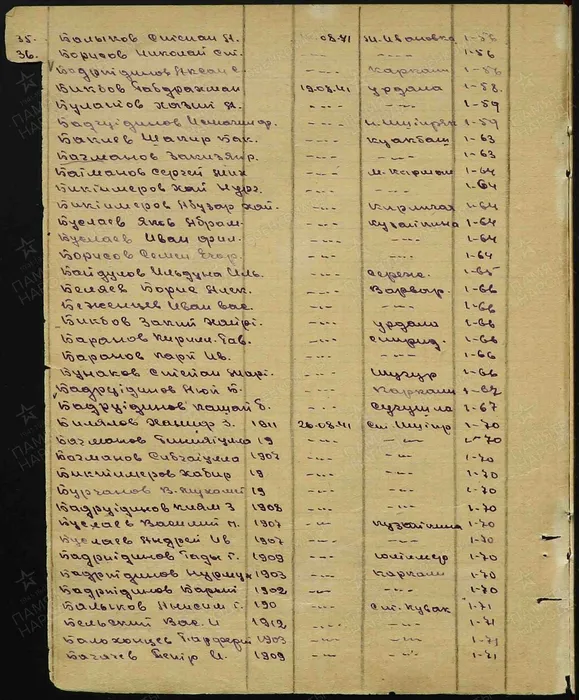 35. Балыков Степан Н. 08.41 Н. Ивановка 1-56
36. Борисов Николай Ст. -"- 1-56
Бадртдинов Аксан С. -"- Каркали 1-58
Бикбов Габдрахман 19.08.41 Урдала 1-58
Булатов Назип Н. -"- -"- 1-59
Бадрутдинов -"- 1-59
Бакиев Шакир Бак. -"- Куакбаш 1-63
Батманов Закизян р. -"- -"- 1-63
Байманов Сергей Мих -"- М. Каркали 1-64
Биктимеров Хай Нург. -"- 1-64
Биктимеров Абузар Хай. -"- 1-64
Буслаев Яков Абрам. -"- Кузайкина 1-64
Буслаев Иван Фил. -"- -"- 1-64
Борисов Семен Егор. -"- -"- 1-64
Байдулов -"- Сереж. 1-65
Беляев Борис Алек. -"- Варвар. 1-66
Беженцев Иван Вас. -"- -"- 1-66
Бикбов Закий Хайрт. -"- Урдали 1-66
Баранов Кирилл Гав. -"- Спирид. 1-66
Баранов Карп Ив. -"- -"- 1-66
Бунаков Степан Мар. -"- Шугур 1-66
Бадрутдинов -"- Каркали 1-62
Бадрутдинов Б. -"- Сугушла 1-67
Билялов Хашир З. 1911 26.08.41 Ст. Шугур 1-70
Батманов 19 -"- -"- 1-70
Батманов Сибгатулла 1907 -"- -"- 1-70
Биктимеров Хабир 19 -"- -"- 1-70
Бурганов В. 19 -"- -"- 1-70
Бадрутдинов Киям З 1908 -"- -"- 1-70
Буслаев Василий П. 1907 -"- Кузайкина 1-70
Буслаев Андрей Ив 1907 -"- -"- 1-70
Бадртдинов Гады Г. 1909 -"- Юлтимер 1-70
Бадртдинов Нурму 1903 -"- Каркали 1-70
Бадртдинов Барый 1902 -"- -"- 1-70
Балыков Анисим Г. 190 -"- Ст. Кувак 1-71
Бельский Вас. И 1912 -"- -"- 1-71
Балахонцев 1903 -"- -"- 1-71
Багачев Петр И. 1909 -"- -"- 1-71